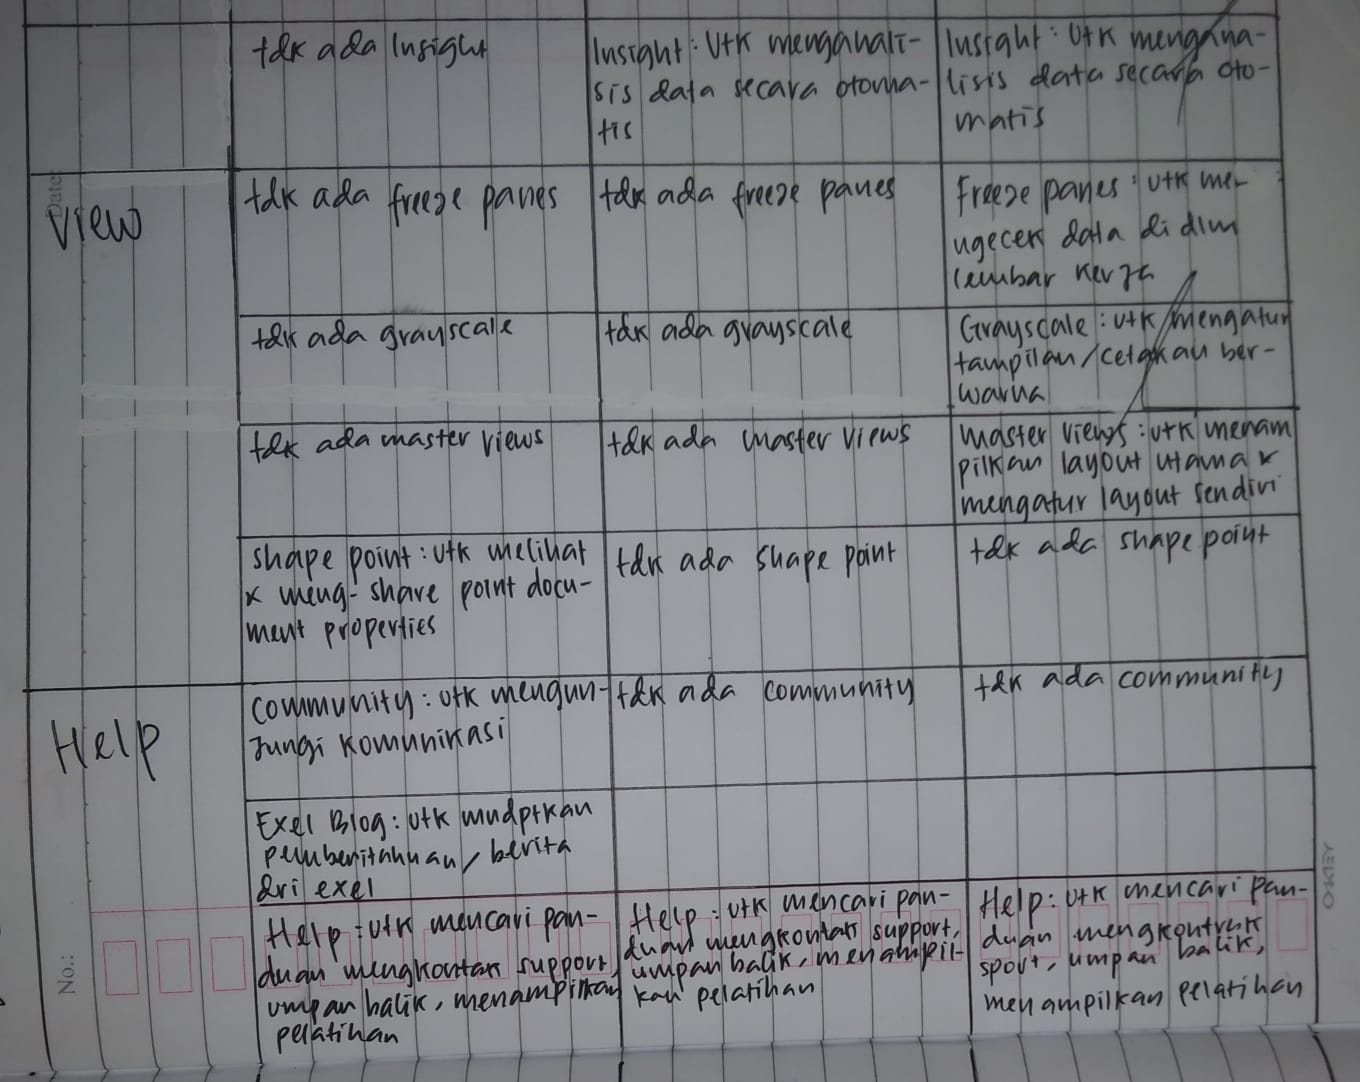 tdk ada Insight
Insight : Utk menganali-
sis data secara otoma-
tis
Insight : Utk mengana-
lisis data secara oto-
matis
Date:
View
tdk ada freeze panes
tdk ada freeze panes
Freeze panes : utk me-
ngecek data di dlm
lembar kerja
tdk ada grayscale
tdk ada grayscale
Grayscale : utk mengatur
tampilan/cetakan ber-
warna
tdk ada master views
tdk ada master views
Master views : utk menam
pilkan layout utama &
mengatur layout sendiri
shape point : utk melihat
& meng-share point docu-
ment properties
tdk ada shape point
tdk ada shape point
Help
Community : utk mengun-
jungi komunikasi
tdk ada community
tdk ada community
Exel Blog : utk mndptkan
pemberitahuan/berita
dri exel
Help : utk mencari pan-
duan mengkontak support,
umpan balik, menampilkan
pelatihan
Help : utk mencari pan-
duan mengkontak support,
umpan balik, menampil-
kan pelatihan
Help : utk mencari pan-
duan mengkontrak
sport, umpan balik,
menampilkan pelatihan
No.:
OKEY